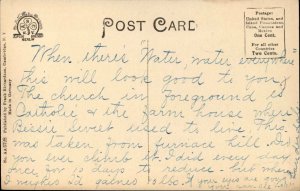 POST CARD
Postage:
United States, and
Island Possessions,
Cuba, Canada and
Mexico
One Cent.
For all other
Countries
Two Cents.
When there's "Water, water everywhere"
this will look good to you,
The church in foreground is
Catholic & the farm house where
Bessie Sweet used to live. This
was taken from furnace hill. Did
you ever climb it. I did every day
once for 10 days to reduce but when
weighed I'd gained 3 lbs. If your eyes are